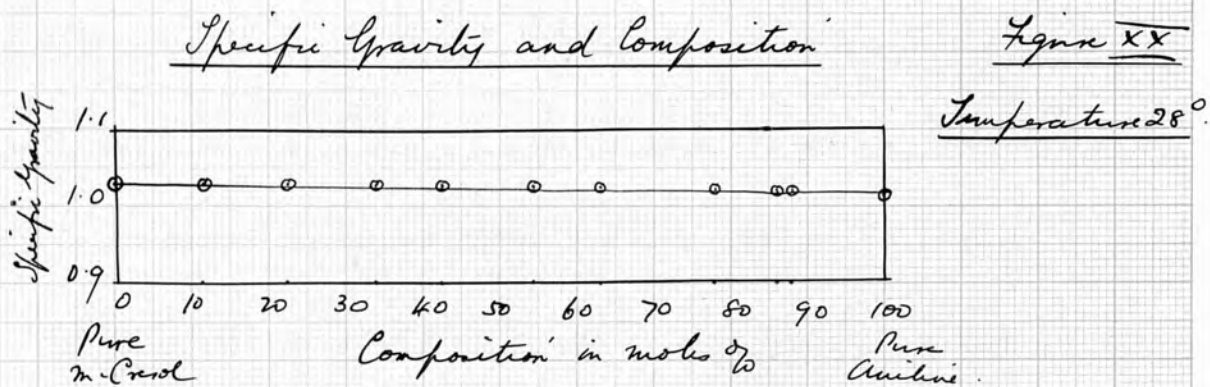 Specific Gravity and Composition
Figure XX
Temperature 28°.
Specific Gravity
1.1
1.0
0.9
0 10 20 30 40 50 60 70 80 90 100
Pure
m-Cresol
Composition in moles %
Pure
Aniline.